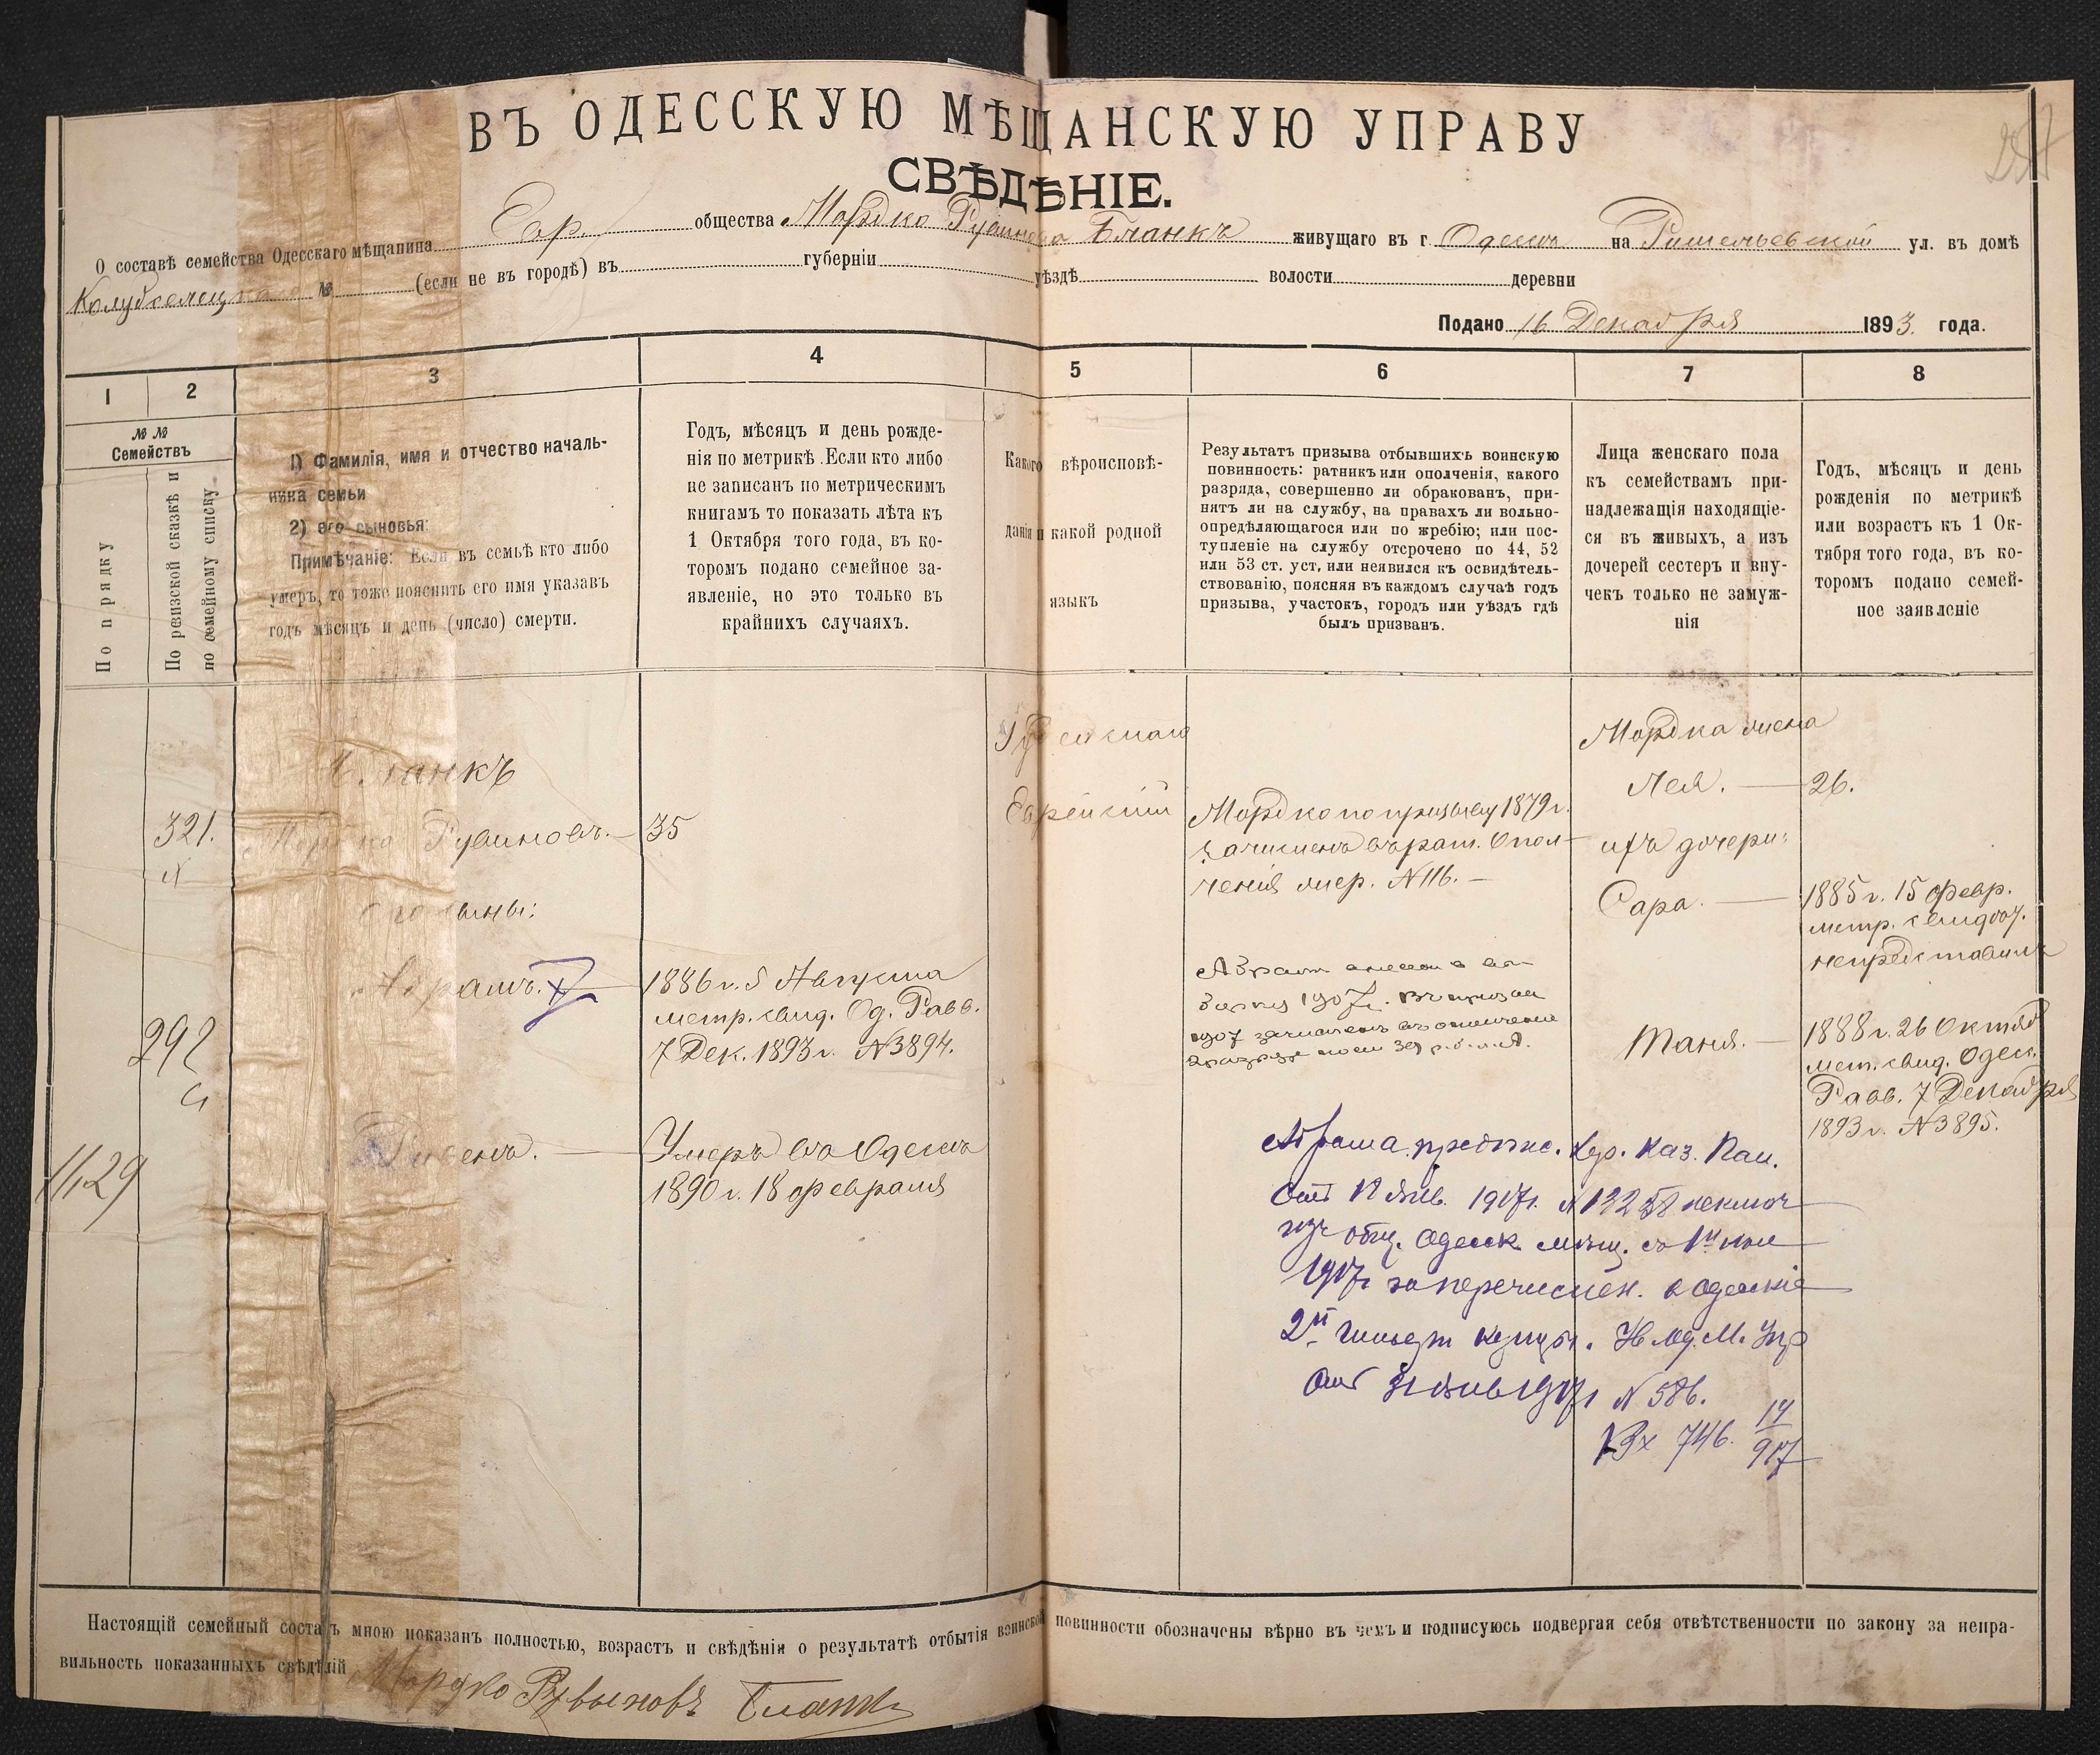 ВЪ ОДЕССКУЮ МѢЩАНСКУЮ УПРАВУ
СВѢДѢНІЕ.
О составѣ семейства Одесскаго мѣщанина Евр. общества Мордко Рувинова Бланкъ живущаго въ г. Одессѣ на Ришельевской ул. въ домѣ
№ (если не въ городѣ) въ губерніи уѣздѣ волости деревни
Подано 16 Декабря 1893 года.
1 2 3 4 5 6 7 8
№ №
Семействъ
По порядку
По ревизской сказкѣ и
по семейному списку
1) Фамилія, имя и отчество началь-
ника семьи
2) его сыновья:
Примѣчаніе: Если въ семьѣ кто либо
умеръ, то тоже пояснить его имя указавъ
годъ мѣсяцъ и день (число) смерти.
Годъ, мѣсяцъ и день рожде-
нія по метрикѣ. Если кто либо
не записанъ по метрическимъ
книгамъ то показать лѣта къ
1 Октября того года, въ ко-
торомъ подано семейное за-
явленіе, но это только въ
крайнихъ случаяхъ.
Какого вѣроисповѣ-
данія и какой родной
языкъ
Результатъ призыва отбывшихъ воинскую
повинность: ратникъ или ополченія, какого
разряда, совершенно ли обракованъ, при-
нятъ ли на службу, на правахъ ли вольно-
опредѣляющагося или по жребію; или пос-
тупленіе на службу отсрочено по 44, 52
или 53 ст. уст, или неявился къ освидѣтель-
ствованію, поясняя въ каждомъ случаѣ годъ
призыва, участокъ, городъ или уѣздъ гдѣ
былъ призванъ.
Лица женскаго пола
къ семействамъ при-
надлежащія находящіе-
ся въ живыхъ, а изъ
дочерей сестеръ и вну-
чекъ только не замуж-
нія
Годъ, мѣсяцъ и день
рожденія по метрикѣ
или возрастъ къ 1 Ок-
тября того года, въ ко-
торомъ подано семей-
ное заявленіе
321.
292
1129
Бланкъ
Мордко Рувиновъ. — 35
его сыны:
Абрамъ.
1886 г. 5 Августа
метр. свид. Од. Равв.
7 Дек. 1893 г. № 3894.
Рувенъ. —
Умеръ въ Одессѣ
1890 г. 18 февраля
Іудейскаго
Еврейскій
Мордко по призыву 1879 г.
зачисленъ въ рат. Опол-
ченія жер. № 116. —
1907 зачисленъ въ ополченіе
Абрама предпис. Хер. Каз. Пал.
1907 г.
изъ общ. Одесск. мѣщ. съ
1907 г. за перечислен. въ Одесскіе
2й гильд. купцы. Од. М. Упр
1907 г. № 586.
Вх 746. 14
917
Мордка жена
Лея. — 26.
ихъ дочери:
Сара. —
1885 г. 15 февр.
метр. свидѣт.
непредставилъ
Таня. —
1888 г. 26 Октяб
мет. свид. Одес.
Равв. 7 Декабря
1893 г. № 3895.
Настоящій семейный составъ мною показанъ полностью, возрастъ и свѣдѣнія о результатѣ отбытія воинской повинности обозначены вѣрно въ чемъ и подписуюсь подвергая себя отвѣтственности по закону за непра-
вильность показанныхъ свѣдѣній Мордко Рувыновъ Бланкъ